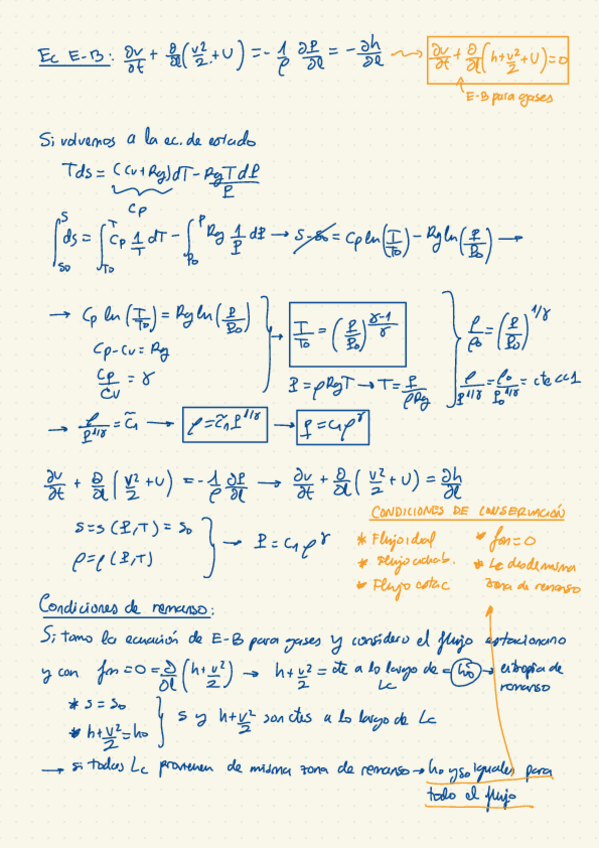 Ec E-B: ∂v/∂t + ∂/∂l (v²/2 + U) = - 1/ρ ∂P/∂l = - ∂h/∂l → ∂v/∂t + ∂/∂l (h + v²/2 + U) = 0
E-B para gases
Si volvemos a la ec. de estado
Tds = (Cv + Rg)dT - RgT dP/P
Cp
∫_{S0}^{S} ds = ∫_{T0}^{T} Cp 1/T dT - ∫_{P0}^{P} Rg 1/P dP → S - S0 = Cp ln(T/T0) - Rg ln(P/P0) →
→ Cp ln(T/T0) = Rg ln(P/P0)
Cp - Cv = Rg
Cp/Cv = γ
→ T/T0 = (P/P0)^{(γ-1)/γ}
P = ρRgT → T = P/ρRg
ρ/ρ0 = (P/P0)^{1/γ}
ρ/P^{1/γ} = ρ0/P0^{1/γ} = cte
→ ρ/P^{1/γ} = c̃1 → ρ = c̃1 P^{1/γ} → P = c1 ρ^γ
∂v/∂t + ∂/∂l (v²/2 + U) = - 1/ρ ∂P/∂l → ∂v/∂t + ∂/∂l (v²/2 + U) = ∂h/∂l
S = S(P,T) = S0
ρ = ρ(P,T)
→ P = c1 ρ^γ
CONDICIONES DE CONSERVACIÓN
* Flujo ideal * fm = 0
* Flujo adiab. * Lc desde misma
* Flujo estac zona de remanso
Condiciones de remanso:
Si tomo la ecuación de E-B para gases y considero el flujo estacionario
y con fm = 0 = ∂/∂l (h + v²/2) → h + v²/2 = cte a lo largo de Lc = h0 → entropia de remanso
* s = s0
* h + v²/2 = h0
s y h + v²/2 son ctes a lo largo de Lc
→ si todas Lc provienen de misma zona de remanso → h0 y s0 iguales para
todo el flujo